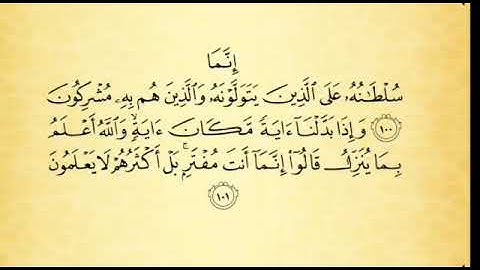 إِنَّمَا
سُلْطَٰنُهُۥ عَلَى ٱلَّذِينَ يَتَوَلَّوْنَهُۥ وَٱلَّذِينَ هُم بِهِۦ مُشْرِكُونَ
١٠٠ وَإِذَا بَدَّلْنَآ ءَايَةً مَّكَانَ ءَايَةٍۙ وَٱللَّهُ أَعْلَمُ
بِمَا يُنَزِّلُ قَالُوٓا۟ إِنَّمَآ أَنتَ مُفْتَرٍۭۚ بَلْ أَكْثَرُهُمْ لَا يَعْلَمُونَ
١٠١